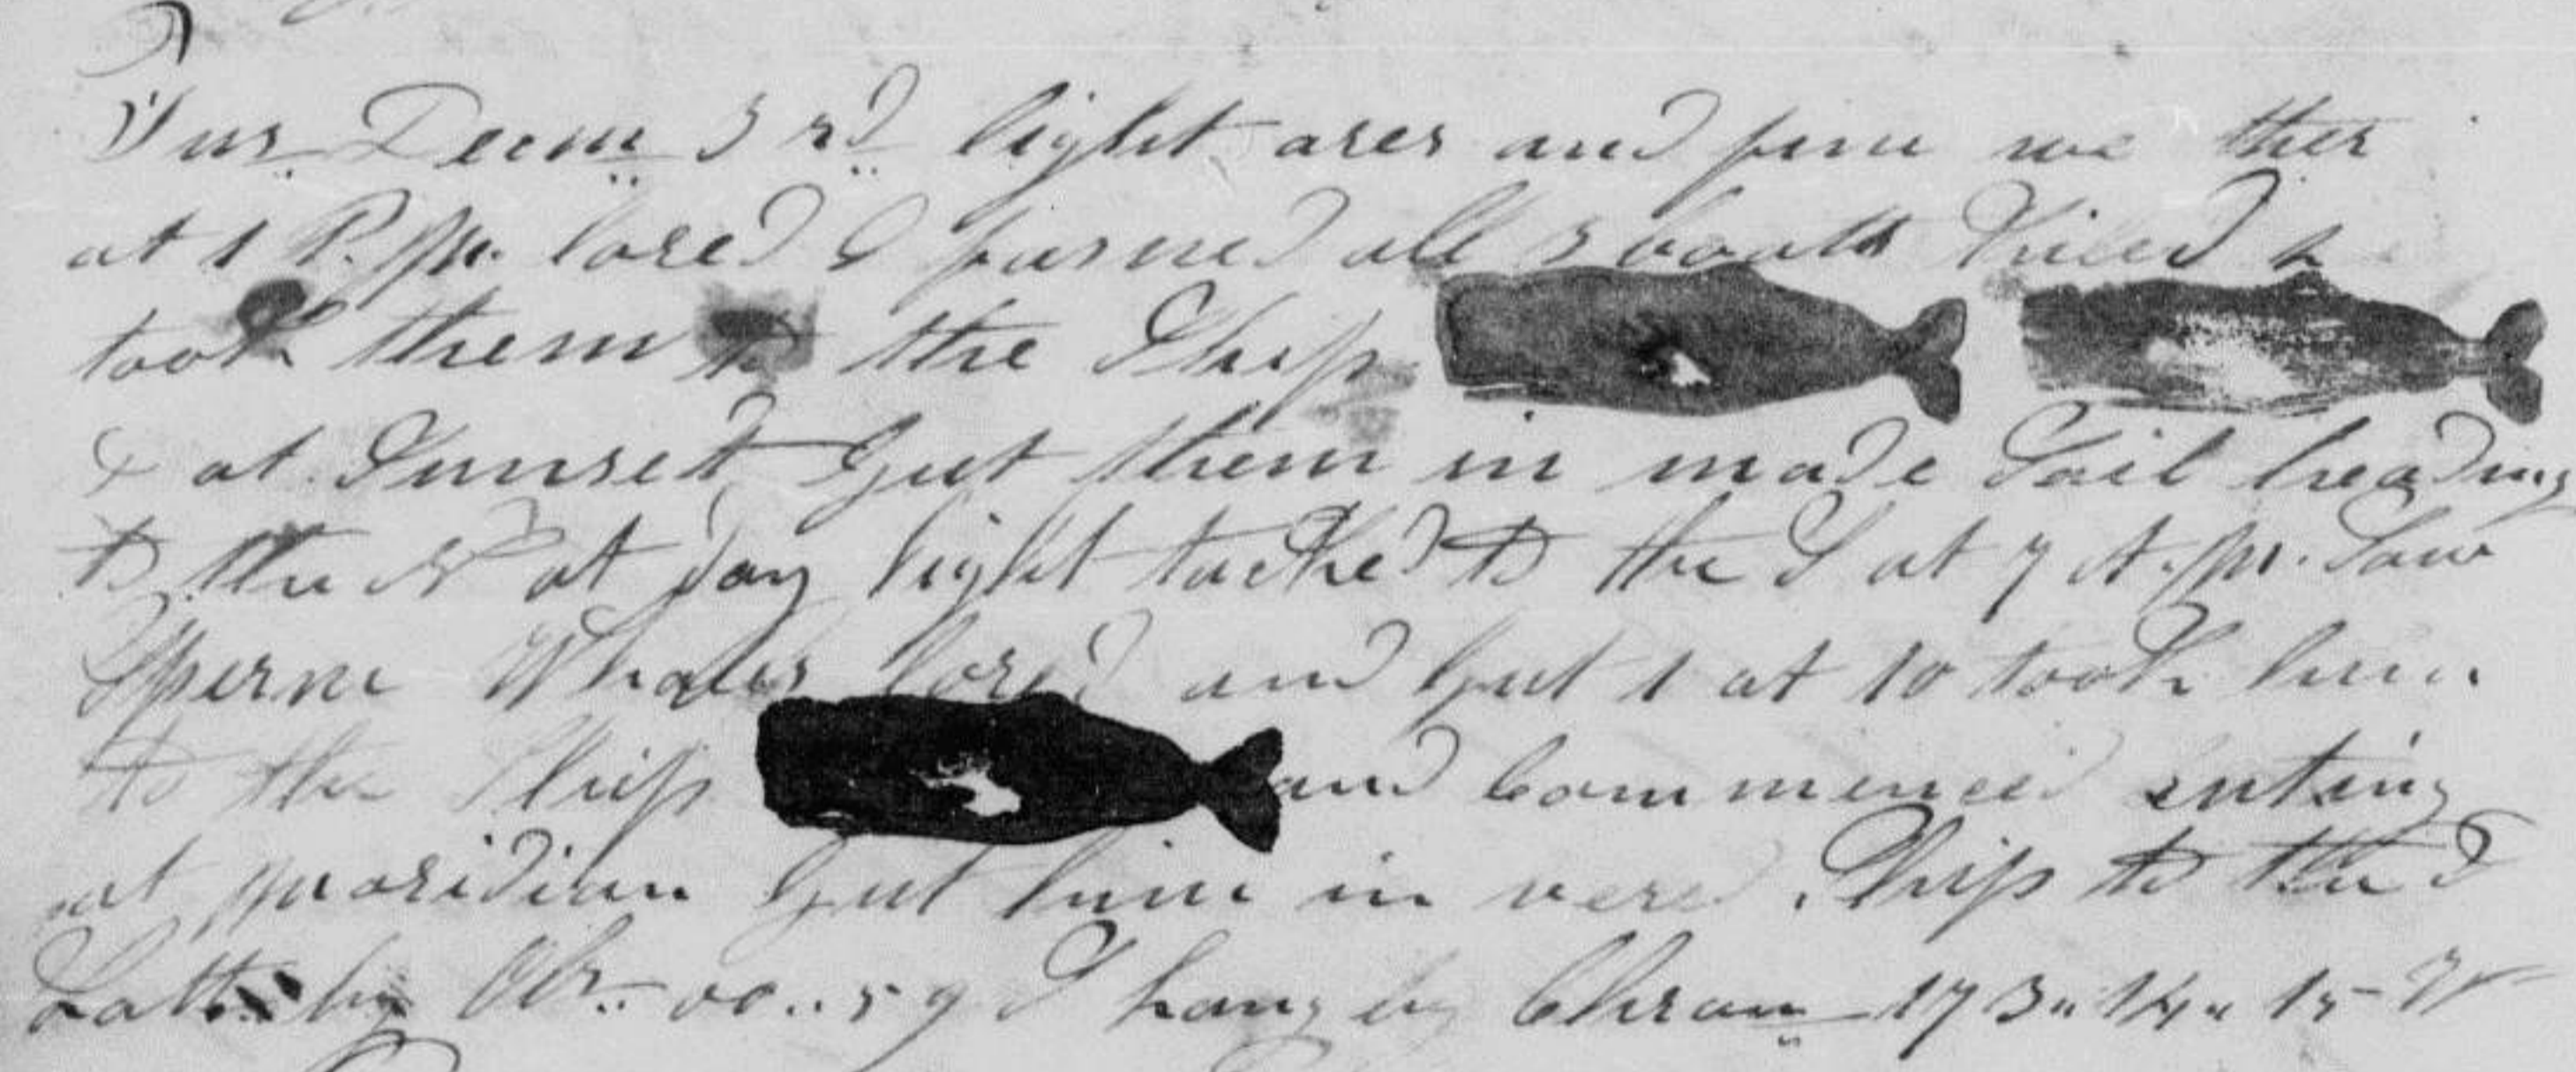 Tus Decm 3rd light ares and fine we ther
at 1 P.M. lored & fasned all 3 boats kiled 2
took them to the Ship
& at Sunset Gut them in made Sail heading
to the Nd at day light tacked to the S at 7 A.M. Saw
Sperm Whales lored and Gut 1 at 10 took him
to the Ship and Commenced cuting
at Maridian Gut him in vered Ship to the S
Latt by Obs 00..59 S Long by Chron 173..14..15 W